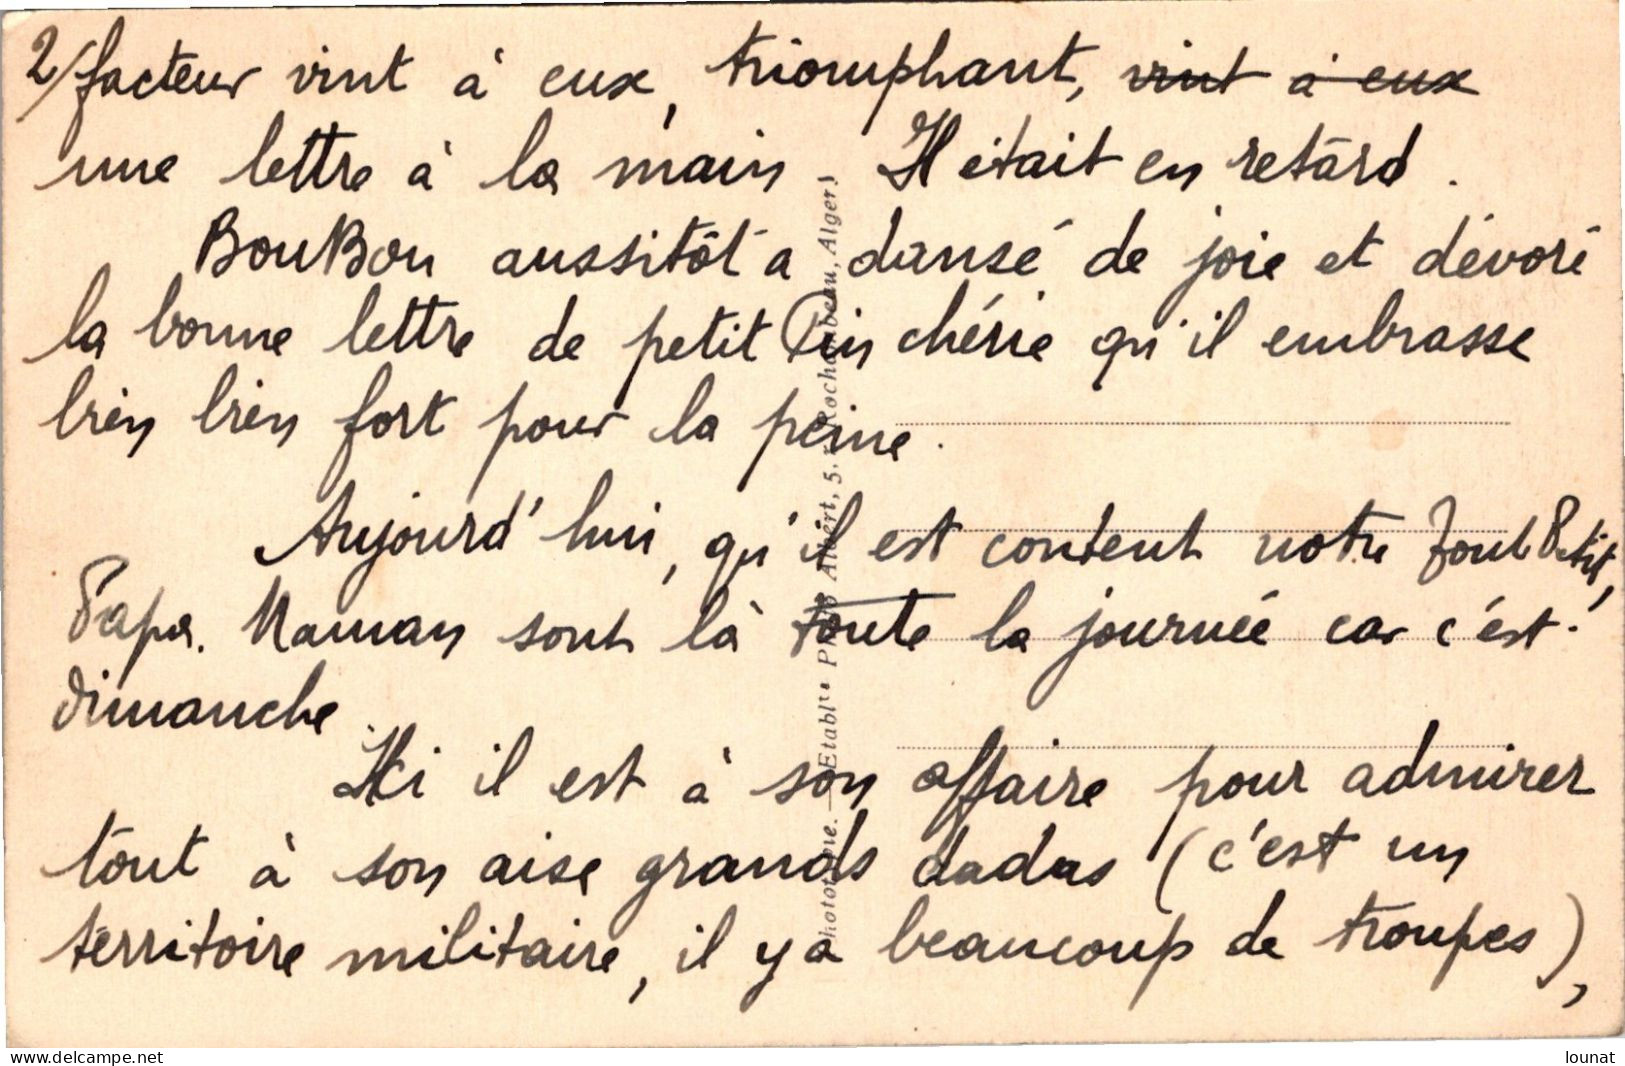 2/ facteur vint à eux, triomphant, vint à eux
une lettre à la main. Il était en retard.
BouBou aussitôt a dansé de joie et dévoré
la bonne lettre de petit Pin chérie qu'il embrasse
bien bien fort pour la peine.
Aujourd'hui, qu'il est content notre Tout Petit,
Papa. Maman sont là toute la journée car c'est
dimanche.
Ici il est à son affaire pour admirer
tout à son aise grands dadas (c'est un
térritoire militaire, il y a beaucoup de troupes),
Phototypie. — Etabl<sup>ts</sup> Photo Albert, 5, r. Rochambeau, Alger)
www.delcampe.net
lounat